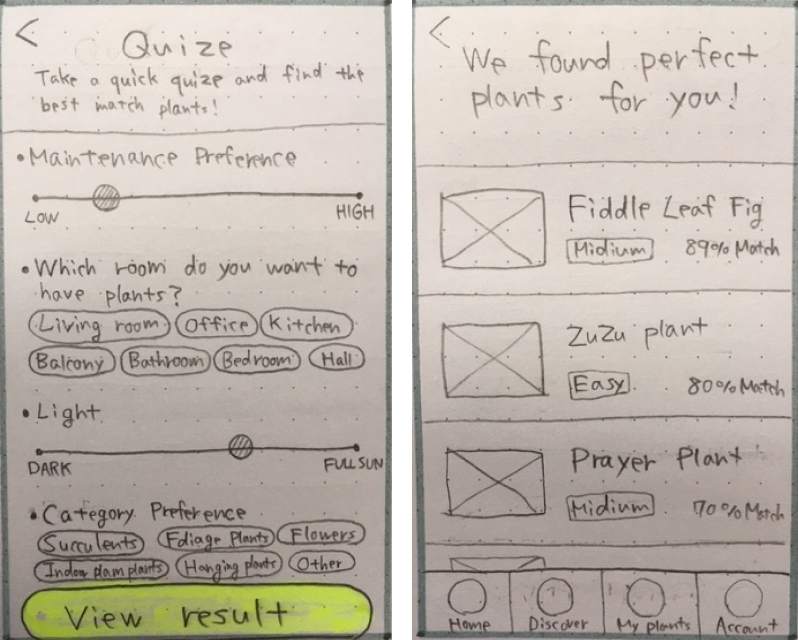 <
Quize
Take a quick quize and find the
best match plants!
• Maintenance Preference
LOW HIGH
• Which room do you want to
have plants?
Living room Office Kitchen
Balcony Bathroom Bedroom Hall
• Light
DARK FULL SUN
• Category Preference
Succulents Foliage Plants Flowers
Indoor plants Hanging plants Other
View result
<
We found perfect
plants for you!
Fiddle Leaf Fig
Midium 89% Match
ZuZu plant
Easy 80% Match
Prayer Plant
Midium 70% Match
Home Discover My plants Account